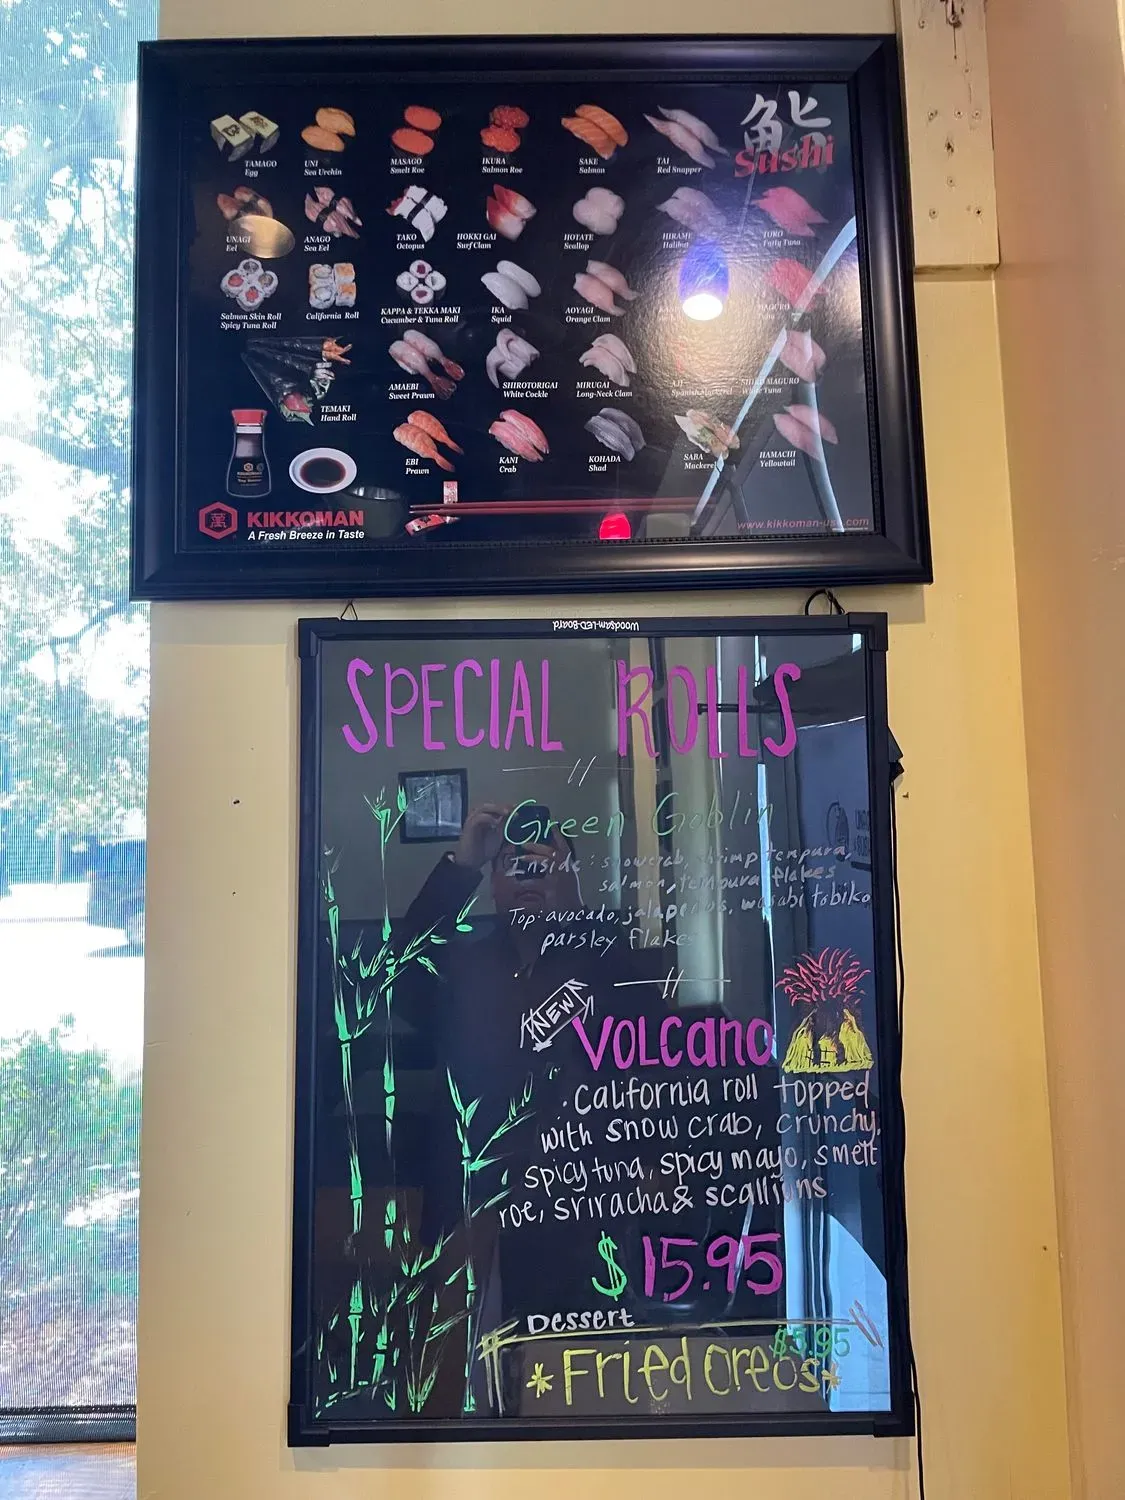 鮨
Sushi
TAMAGO
Egg
UNI
Sea Urchin
MASAGO
Smelt Roe
IKURA
Salmon Roe
SAKE
Salmon
TAI
Red Snapper
UNAGI
Eel
ANAGO
Sea Eel
TAKO
Octopus
HOKKI GAI
Surf Clam
HOTATE
Scallop
HIRAME
Halibut
TORO
Fatty Tuna
Salmon Skin Roll
Spicy Tuna Roll
California Roll
KAPPA & TEKKA MAKI
Cucumber & Tuna Roll
IKA
Squid
AOYAGI
Orange Clam
TEMAKI
Hand Roll
AMAEBI
Sweet Prawn
SHIROTORIGAI
White Cockle
MIRUGAI
Long-Neck Clam
AJI
Spanish Mackerel
SHIRO MAGURO
White Tuna
EBI
Prawn
KANI
Crab
KOHADA
Shad
SABA
Mackerel
HAMACHI
Yellowtail
萬
KIKKOMAN
A Fresh Breeze in Taste
www.kikkoman-usa.com
Woodsam-LED-Board
SPECIAL ROLLS
Green Goblin
Inside: snowcrab, shrimp tempura,
salmon, tempura flakes
Top: avocado, jalapenos, wasabi tobiko
parsley flakes
NEW
VOLCano
California roll topped
with snow crab, crunchy,
spicy tuna, spicy mayo, smelt
roe, sriracha & scallions
$15.95
Dessert
$5.95
*Fried oreos*